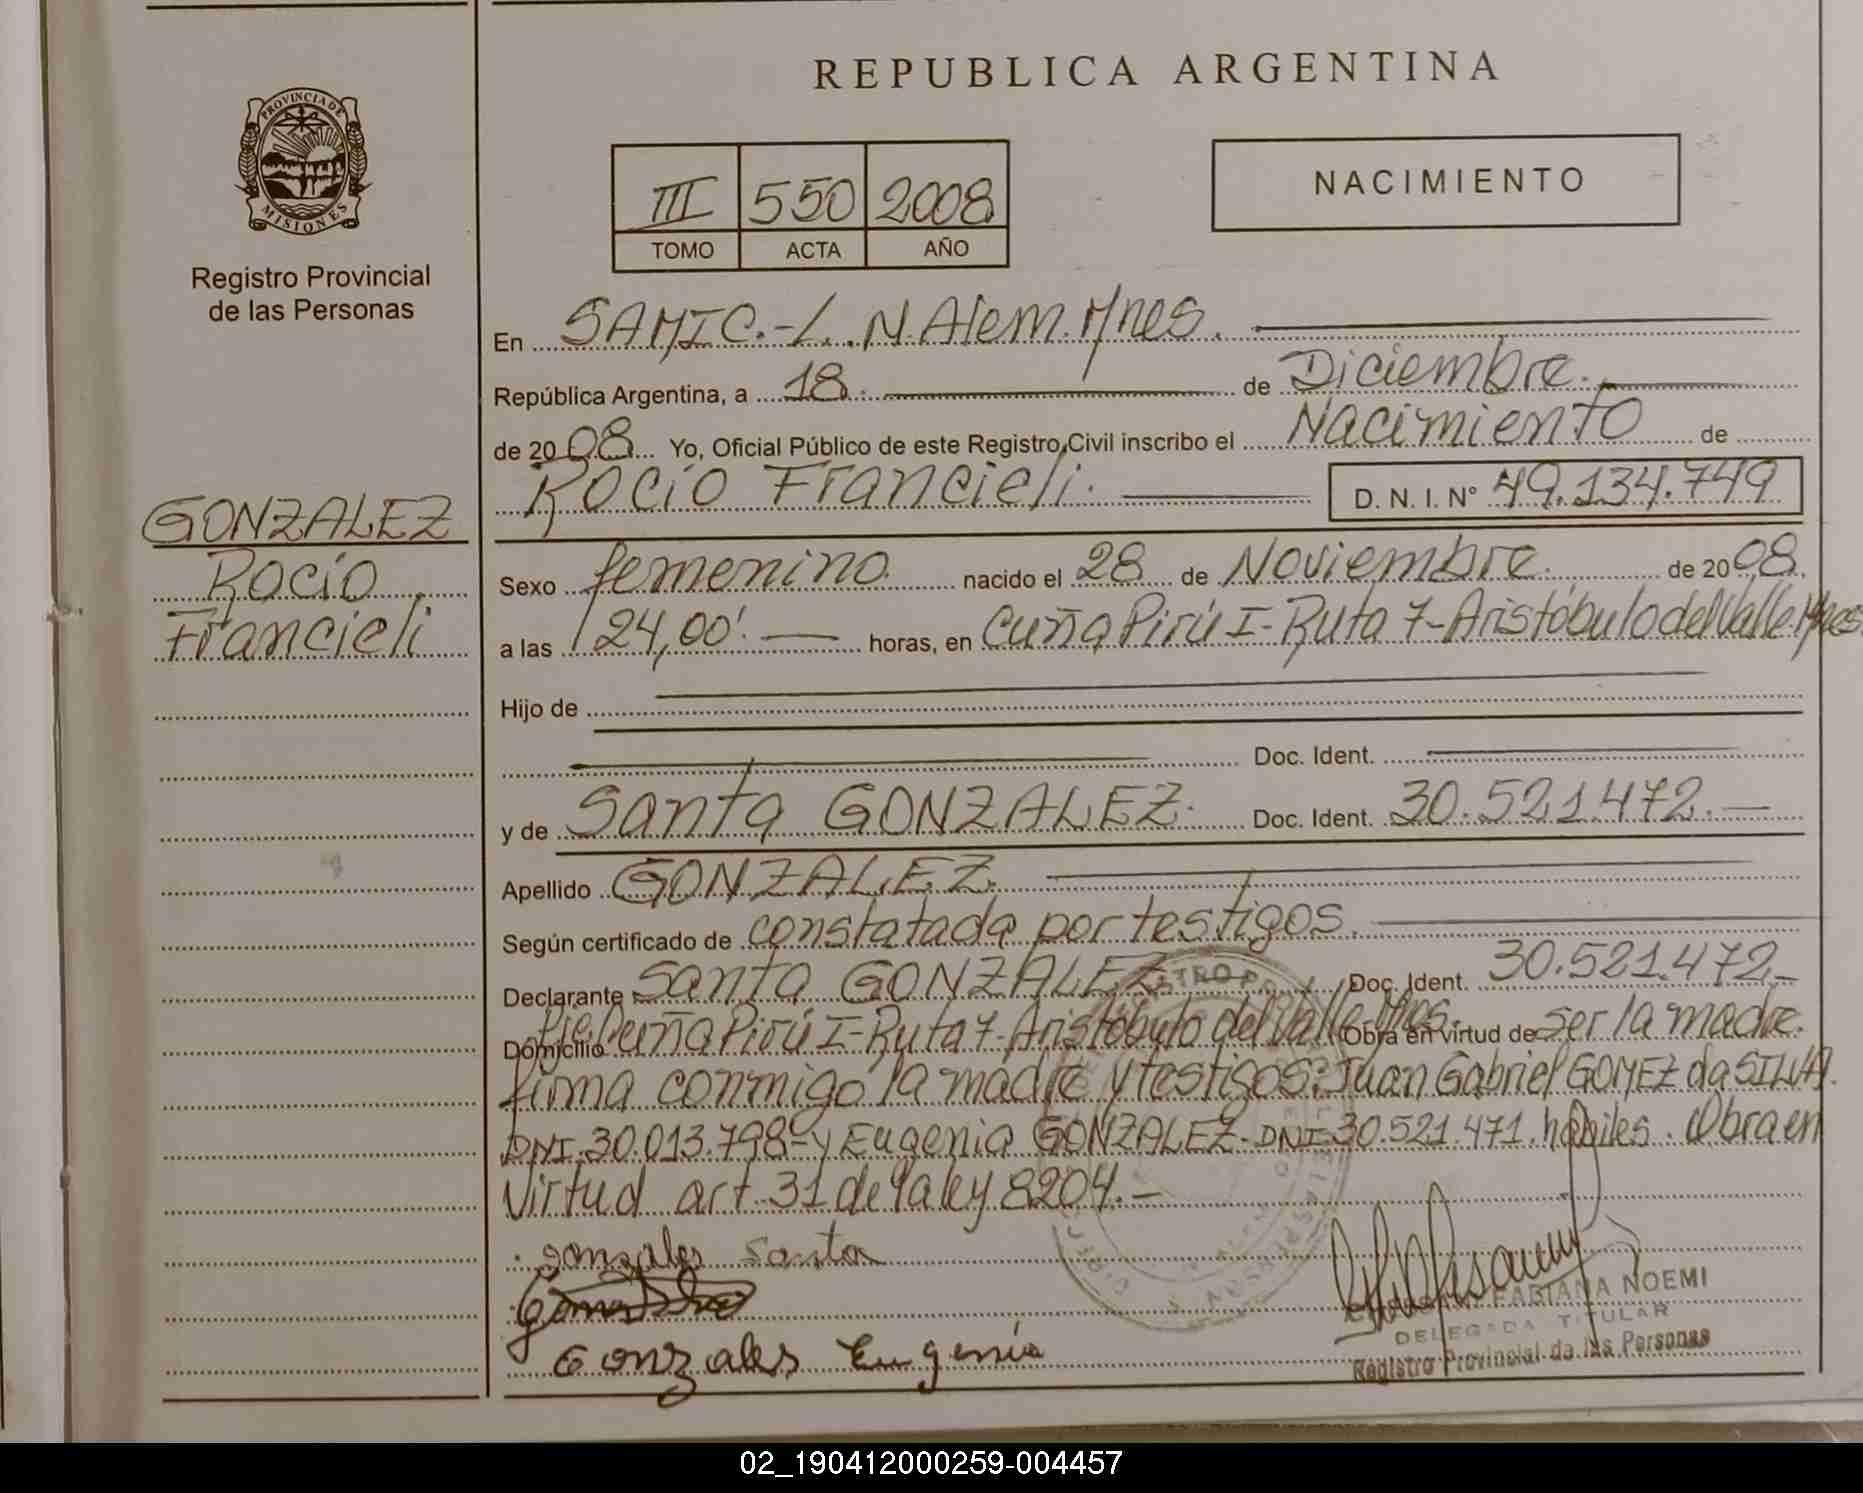 REPUBLICA ARGENTINA
PROVINCIA DE MISIONES
Registro Provincial
de las Personas
III 550 2008
TOMO ACTA AÑO
NACIMIENTO
En SAMIC.-L.N.Alem.Mnes.
República Argentina, a 18. de Diciembre.
de 2008. Yo, Oficial Público de este Registro Civil inscribo el Nacimiento de
Rocío Francieli. D. N. I. N° 49.134.749
GONZALEZ
Rocío
Francieli
Sexo femenino nacido el 28 de Noviembre. de 2008.
a las 24,00'. horas, en Cuña Pirú I-Ruta 7-Aristóbulo del Valle Mnes
Hijo de
Doc. Ident.
y de Santa GONZALEZ. Doc. Ident. 30.521.472.-
Apellido GONZALEZ.
Según certificado de constatada por testigos.
Declarante Santa GONZALEZ Doc. Ident. 30.521.472.-
Domicilio Pje. Cuña Pirú I-Ruta 7-Aristóbulo del Valle Mnes. Obra en virtud de ser la madre.
firma conmigo la madre y testigos: Juan Gabriel GOMEZ da SILVA.
DNI.30.013.798-y Eugenia GONZALEZ-DNI-30.521.471.hábiles. Obra en
virtud art.31 de la ley 8204.-
gonzales Santa
Gonzales Eugenia
FABIANA NOEMI
DELEGADA TITULAR
Registro Provincial de las Personas
02_190412000259-004457